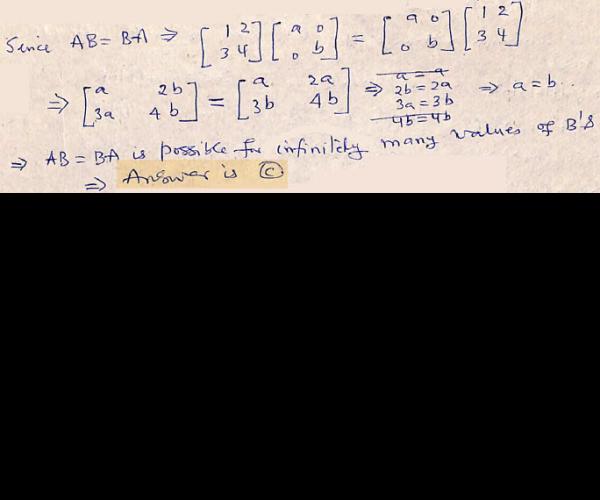 Since AB = BA ⇒ [1 2 3 4] [a 0 0 b] = [a 0 0 b] [1 2 3 4]
⇒ [a 2b 3a 4b] = [a 2a 3b 4b] ⇒ a = a 2b = 2a 3a = 3b 4b = 4b ⇒ a = b.
⇒ AB = BA is possible for infinitely many values of B's
⇒ Answer is ⓒ